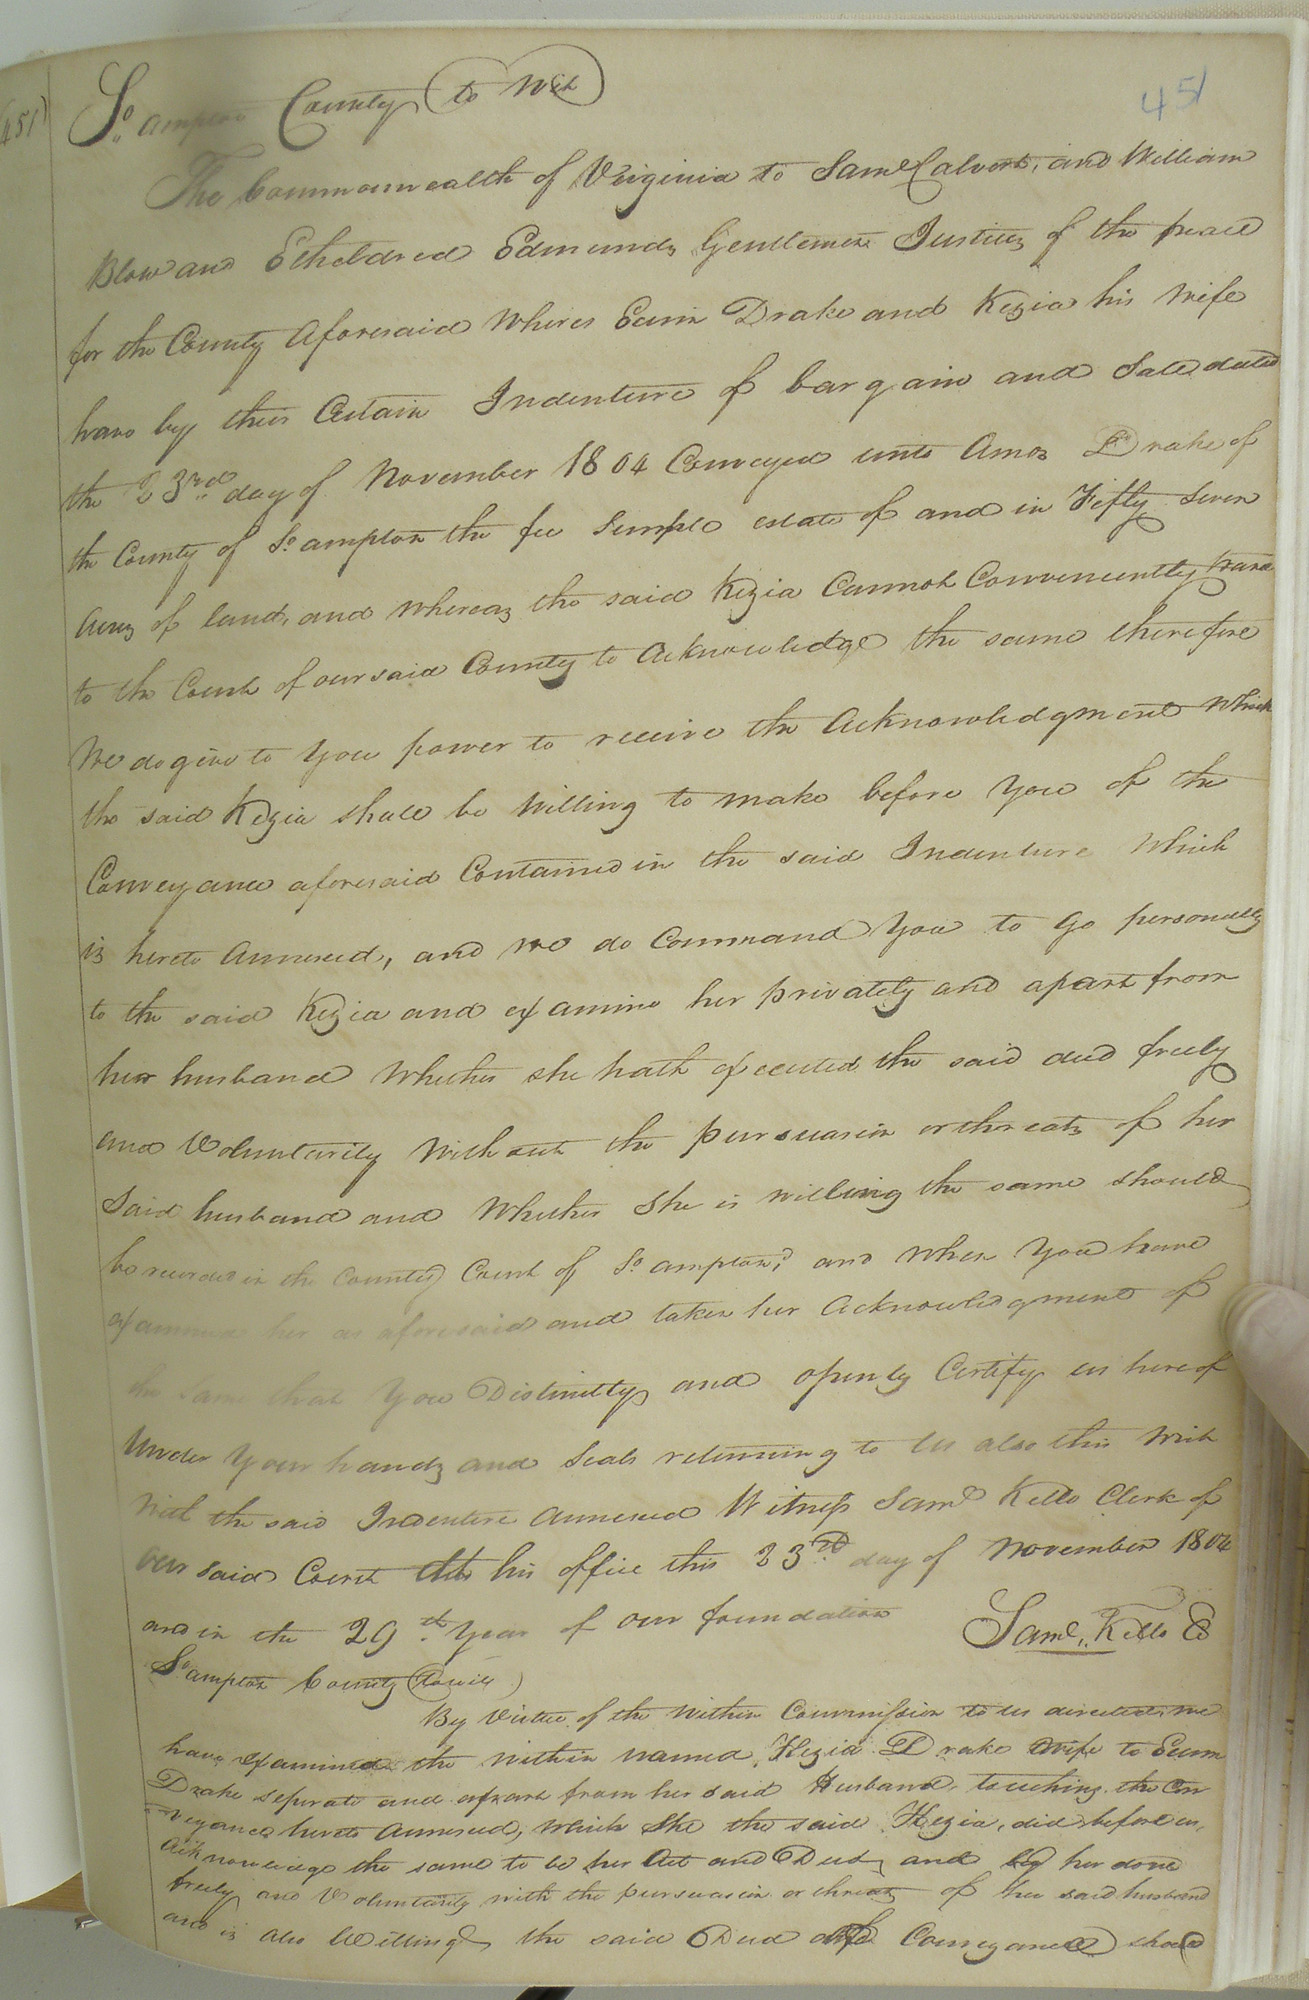 (451)
451
So ampton County to Wit
The Commonwealth of Virginia to Saml Calvert, and William
Blow and Etheldred Edmunds Gentlemen Justices of the peace
for the County Aforesaid Wheres Exum Drake and Kezia his Wife
have by their Certain Indenture of bargain and Sale dated
the 23rd day of November 1804 Conveyed unto Amos Drake of
the County of So ampton the fee Simple estate of and in Fifty Seven
Acres of land, and Whereas the said Kezia Cannot Conveniently travel
to the Court of our said County to Acknowledge the same therefore
We do give to You power to receive the Acknowledgment Which
the said Kezia shall be Willing to make before You of the
Conveyance aforesaid Contained in the said Indenture Which
is hereto Annexed, and we do Command You to Go personally
to the said Kezia and examine her privately and apart from
her husband Whether she hath executed the said deed freely
and Voluntarily Without the pursuasion or threats of her
Said husband and Whether She is willing the same should
be recorded in the County Court of So ampton, and When You have
examined her as aforesaid and taken her Acknowledgment of
the same that You Distinctly and openly Certify us hereof
Under Your hands and Seals returning to Us also this Writ
With the said Indenture Annexed Witness Saml Kello Clerk of
Our said Court At his office this 23rd day of November 1804
and in the 29th Year of our foundation Saml,, Kello C
So ampton County (towit)
By Virtue of the Within Commission to us directed, we
have examined the Within named Kezia Drake Wife to Exum
Drake seperate and apart from her said Husband, touching the Con
veyance hereto Annexed, which She the said Kezia, did before us,
Acknowledge the same to be her Act and Deed, and by her done
freely and Voluntarily with the pursuasion or threats of her said husband
and is also Willing the said Deed of Conveyance should